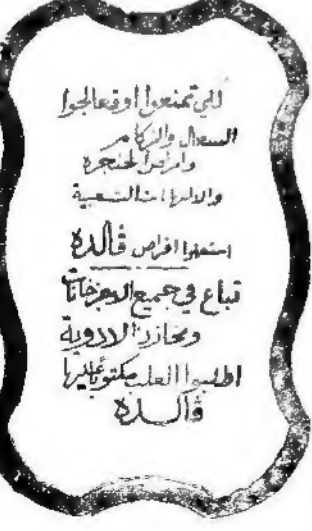 لكي تمنعوا اوتعالجوا
السعال والزكام
وامراض الحنجرة
والالتهابات الشعبية
استعملوا اقراص ڤالده
تباع في جميع الاجزاخانات
ومخازن الادوية
اطلبوا العلب مكتوبا عليها
ڤالده